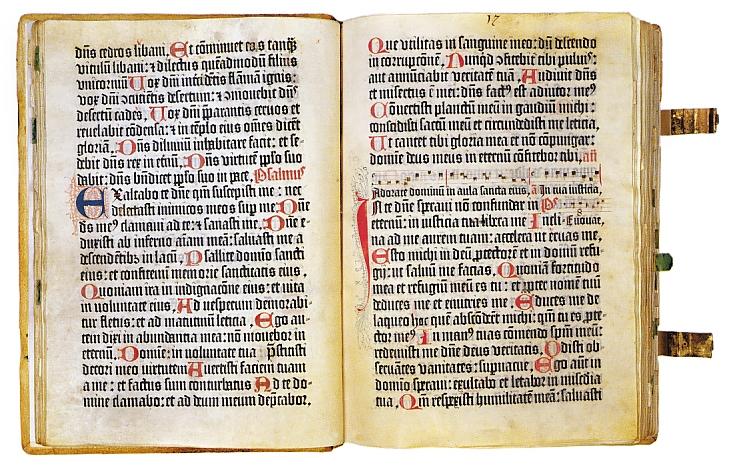 dñs cedros libani, Et cōminuet eos tanq̄
vitulū libani: ⁊ dilectus quēadmodū filius
vnicorniū Vox dñi intercidētis flāmā ignis:
vox dñi ɔcutiētis desertum: ⁊ ɔmouebit dñs
desertū cades, Vox dñi p̄parantis ceruos et
reuelabit cōdensa: ⁊ in tēplo eius oēs dicēt
gloriā, Dñs diluuiū inhabitare facit: et se-
debit dñs rex in eternū, Dñs virtutē pp̄lo suo
dabit: dñs bñdicet pp̄lo suo in pace, Psalmus
Exaltabo te dñe qm̄ suscepisti me: nec
delectasti inimicos meos sup me Dñe
ds me⁹ clamaui ad te: ⁊ sanasti me, Dñe e-
duxisti ab inferno aīam meā: saluasti me a
descendētibus in lacū, Psallite domino sancti
eius: et confitemi memorie sanctitatis eius,
Quoniam ira in indignacōne eius: et vita
in voluntate eius, Ad vesperum demorabi-
tur fletus: et ad matutinū leticia, Ego au-
tem dixi in abundantia mea: nō mouebor in
eternū, Domine in voluntate tua p̄stitisti
decori meo virtutem Auertisti faciem tuam
a me: et factus sum conturbatus Ad te do-
mine clamabo: et ad deum meum deprecabor,
17
Que vtilitas in sanguine meo: dū descendo
in corrupcōnē, Nūqd ɔfitebit tibi puluis:
aut annūciabit veritatē tuā, Audiuit dñs
et misertus ē mei: dñs fact⁹ est adiutor me⁹
Cōuertisti planctū meū in gaudiū michi:
conscidisti saccū meū et circundedisti me leticia,
Ut cantet tibi gloria mea et nō cōpungar:
domine deus meus in eternū cōfitebor tibi, añ
Adorate dominū in aula sancta eius, a In tua iusticia, Ps
In te dñe speraui nō confundar in
eternū: in iusticia tua libera me Incli- Euouae,
na ad me aurem tuam: accelera vt eruas me,
Esto michi in deū, ptectorē et in domū refu-
gij: vt saluū me facias, Quoniā fortitudo
mea et refugiū meū es tu: et ppter nomē tuū
deduces me et enutries me, Educes me de
laqueo hoc quē abscōderūt michi: qm̄ tu es pte-
ctor me⁹ In man⁹ tuas cōmendo sp̄m meū:
redemisti me dñe deus veritatis, Odisti ob-
seruātes vanitates: supuacue, Ego aūt in
domino speraui: exultabo et letabor in mīsedia
tua, Qm̄ respexisti humilitatē meā: saluasti